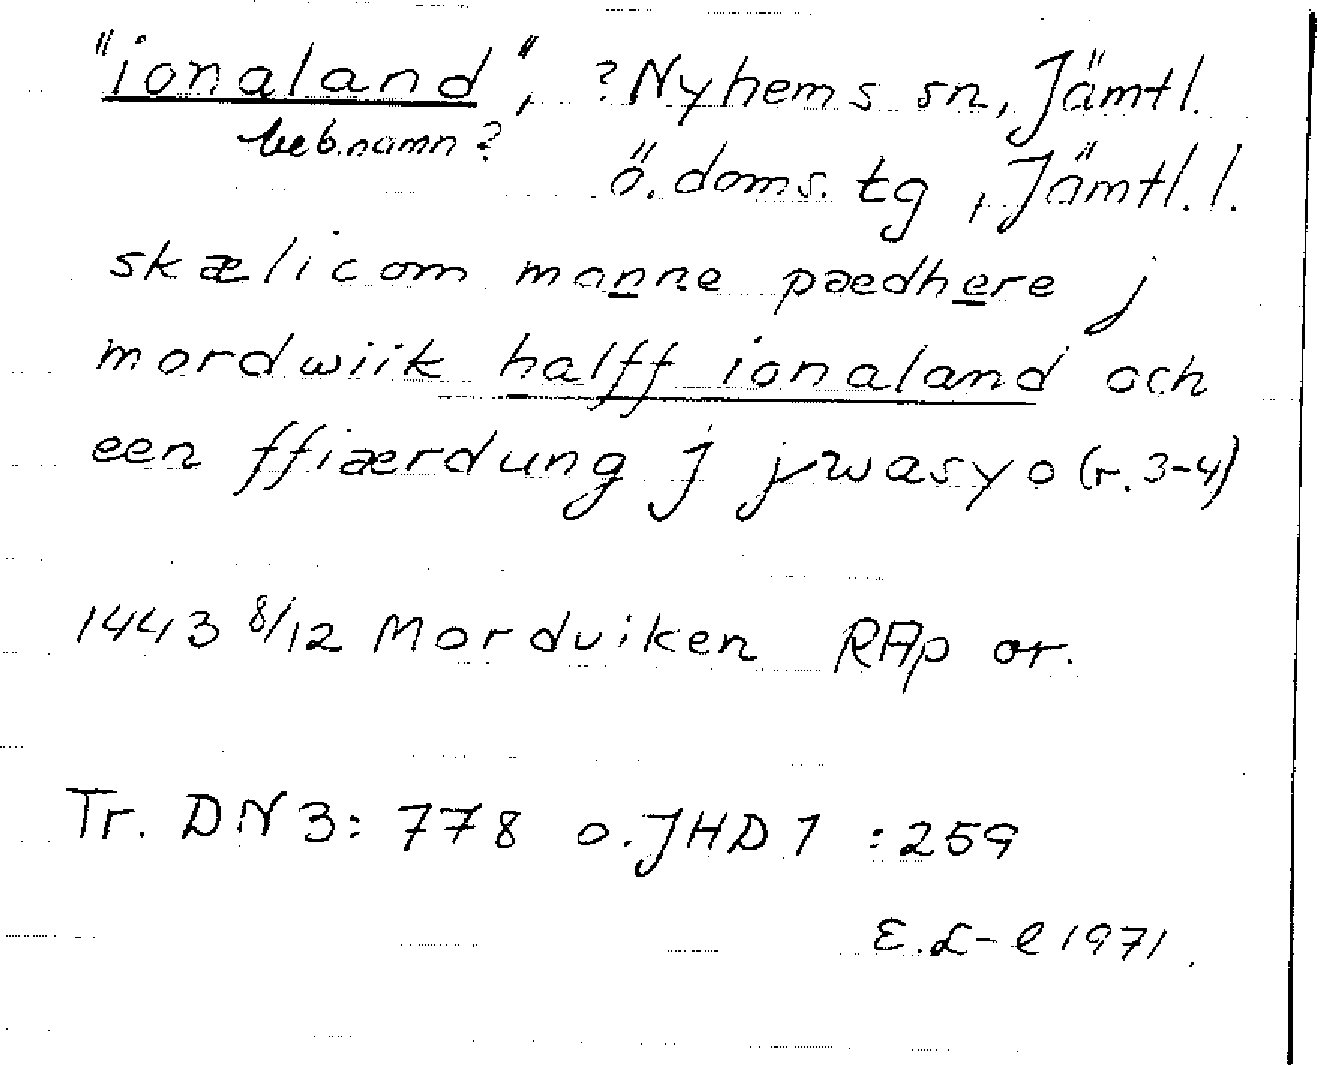 "ionaland", ?Nyhems sn, Jämtl.
beb.namn?
ö. doms. tg, Jämtl. l.
skælicom manne pædhere j
mordwiik halff ionaland och
een ffiærdung j jwasyo (r. 3-4)
1443 8/12 Mordviken RAp or.
Tr. DN 3: 778 o. JHD 1 : 259
E.L-l 1971.